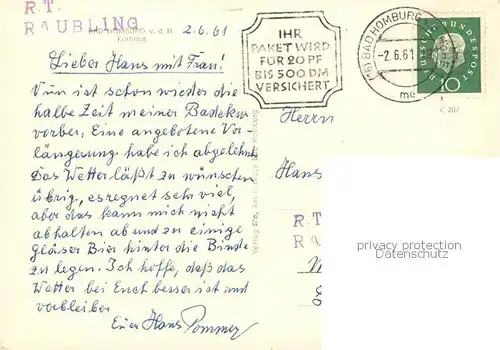 R.T.
RAUBLING
BAD HOMBURG v. d. H.
Kurhaus
2.6.61
Lieber Hans mit Frau!
Nun ist schon wieder die
halbe Zeit meiner Badekur
vorbei. Eine angebotene Ver-
längerung habe ich abgelehnt.
Das Wetter läßt zu wünschen
übrig, es regnet sehr viel,
aber das kann mich nicht
abhalten ab und zu einige
Gläser Bier hinter die Binde
zu legen. Ich hoffe, daß das
Wetter bei Euch besser ist und
verbleibe
Euer Hans Pommer
IHR
PAKET WIRD
FÜR 20 PF
BIS 500 DM
VERSICHERT
(16) BAD HOMBURG
-2.6.61
me
DEUTSCHE BUNDESPOST
10
C 207
Herrn
Hans
R.T.
RA
privacy protection
watermark